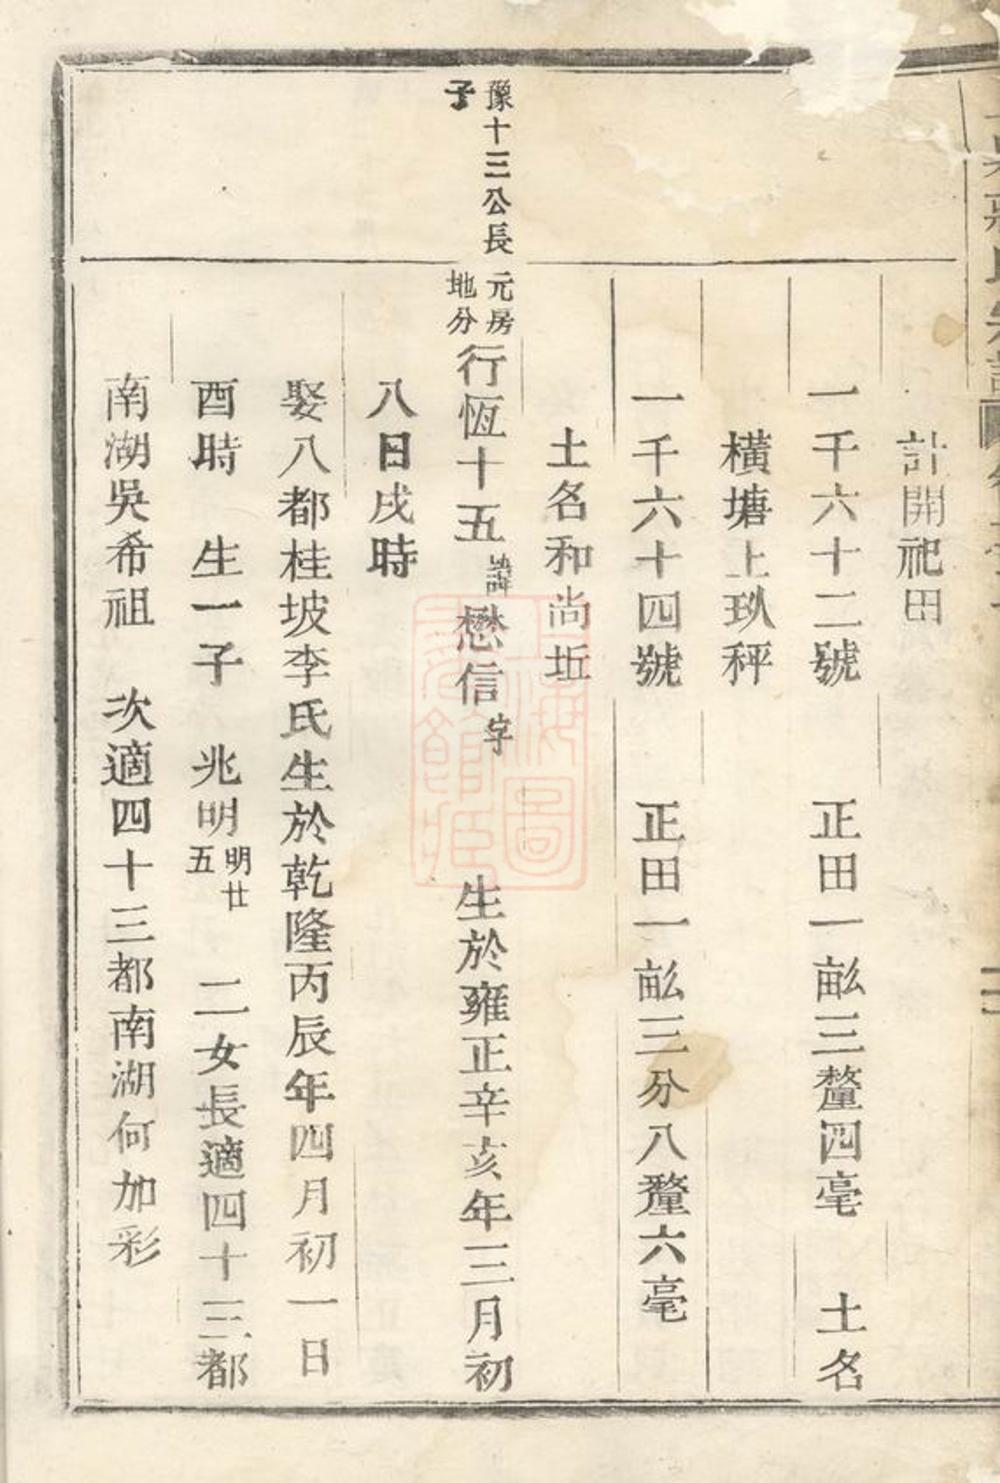 計開祀田
一千六十二號　正田一畝三釐四毫　土名
橫塘上玖秤
一千六十四號　正田一畝三分八釐六毫
土名和尚坵
豫十三公長
子
元房
地分
行恆十五 諱 懋信 字　生於雍正辛亥年三月初
八日戌時
娶八都桂坡李氏生於乾隆丙辰年四月初一日
酉時　生一子　兆明 明廿五　二女長適四十三都
南湖吳希祖　次適四十三都南湖何加彩